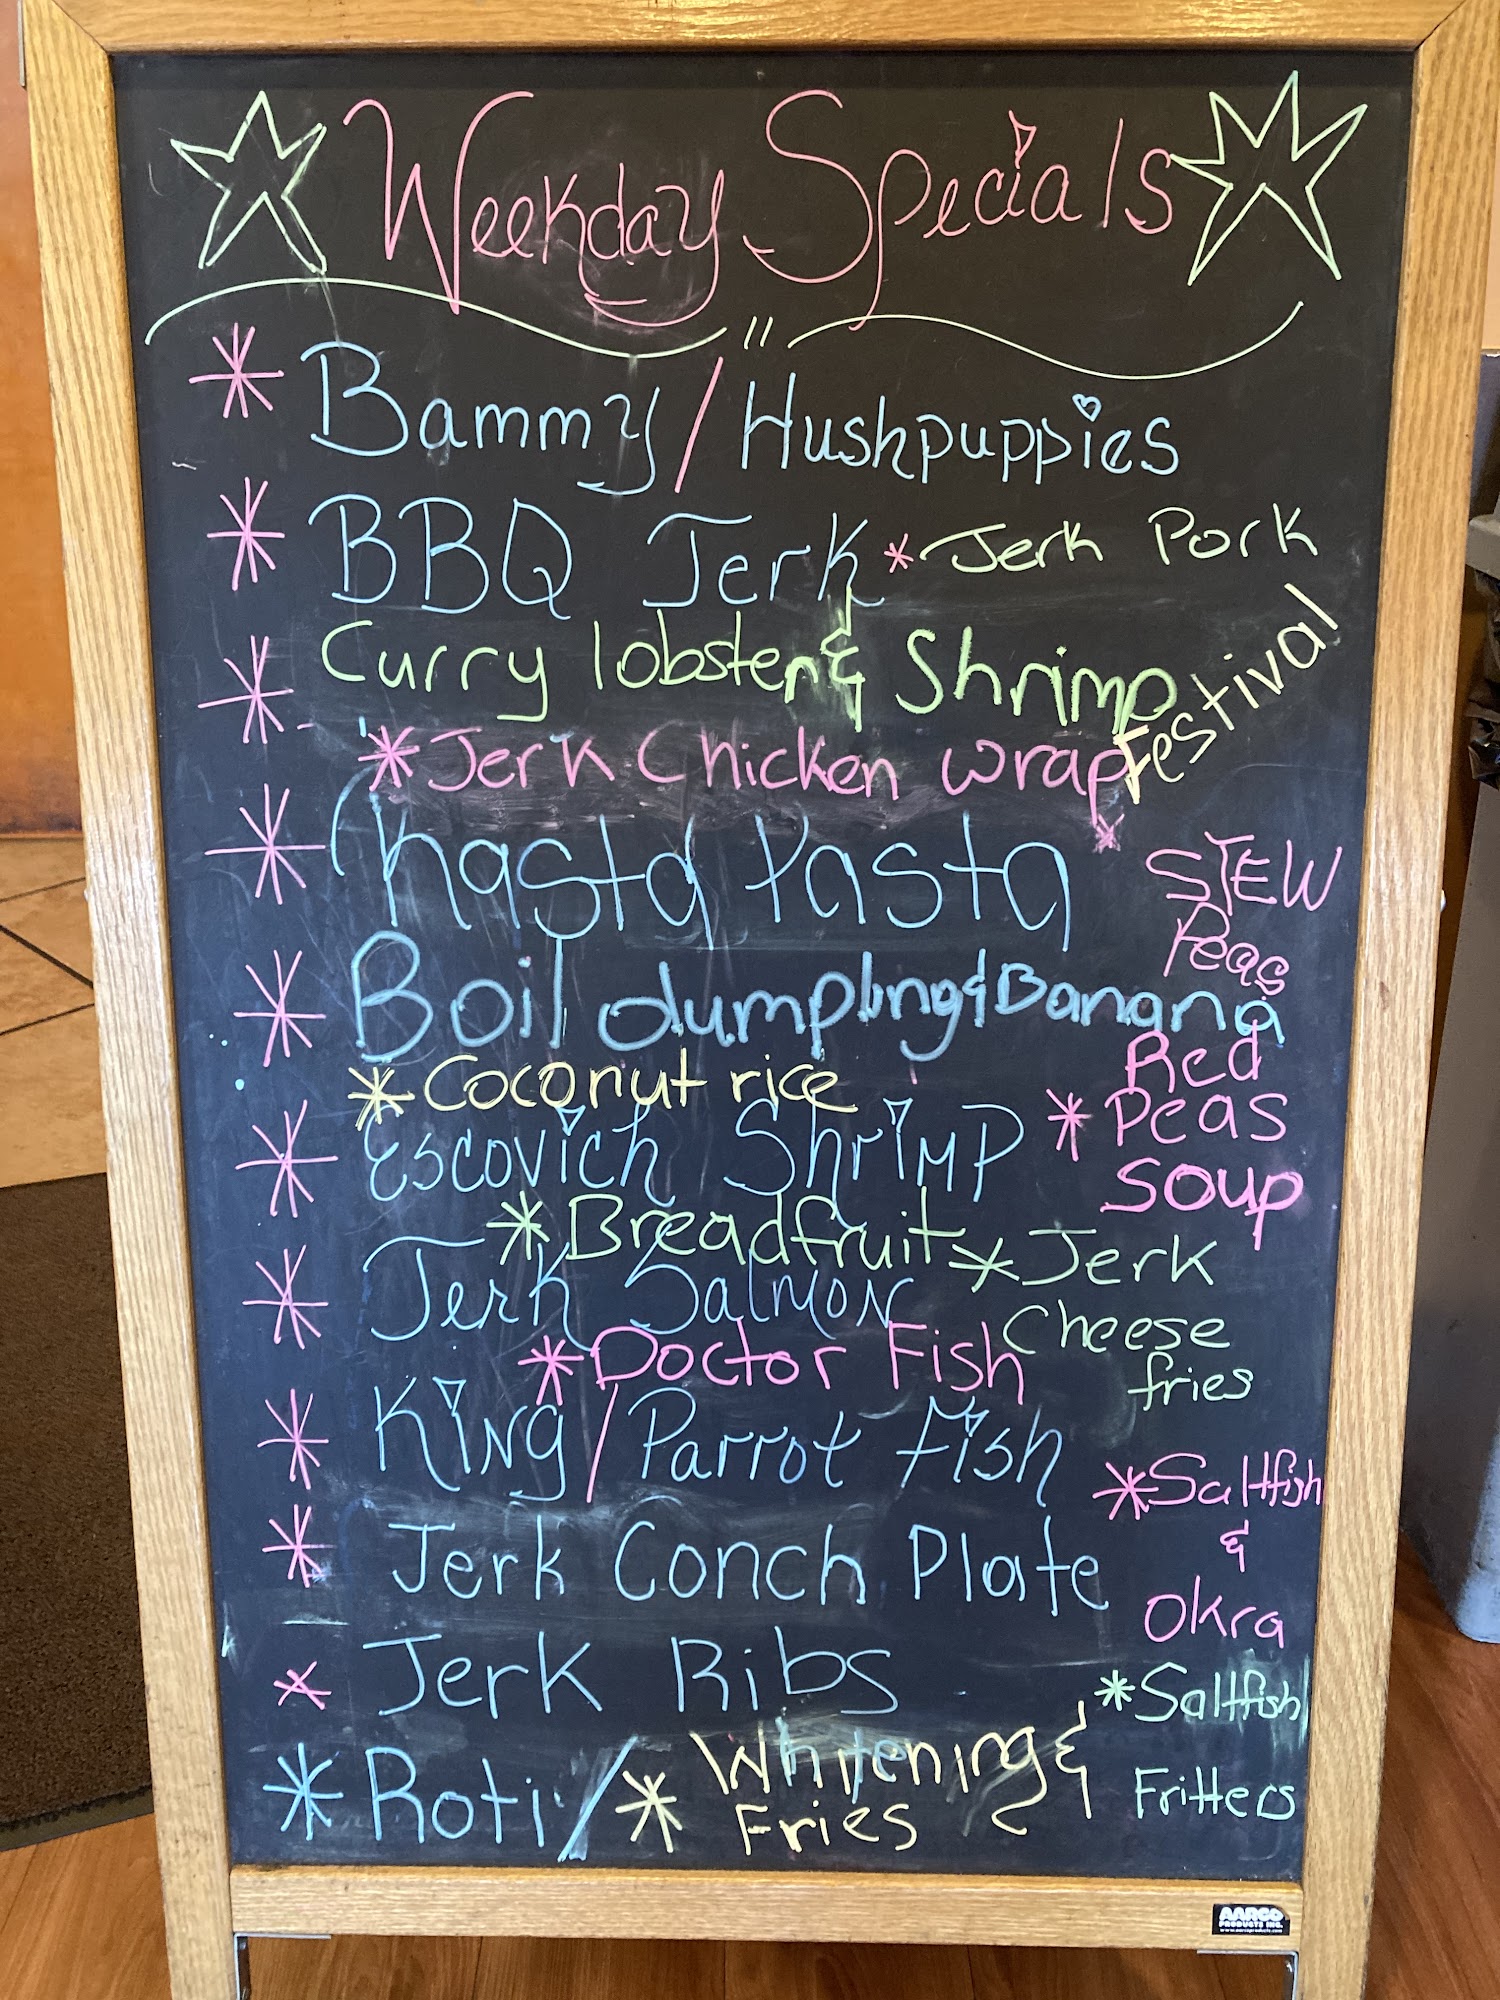 Weekday Specials
* Bammy / Hushpuppies
* BBQ Jerk * Jerk Pork
* Curry lobster & Shrimp
Festival
* Jerk Chicken wrap
* Rasta Pasta
* STEW
Peas
* Boil dumpling & Banana
* Coconut rice
* Red
Peas
Soup
* Escovich Shrimp
* Breadfruit
* Jerk
Cheese
fries
* Jerk Salmon
* Doctor Fish
* King / Parrot fish
* Saltfish
&
Okra
* Jerk Conch Plate
* Jerk Ribs
* Saltfish
Fritters
* Roti / * Whitening &
Fries
AARCO
PRODUCTS INC.
www.aarcoproducts.com